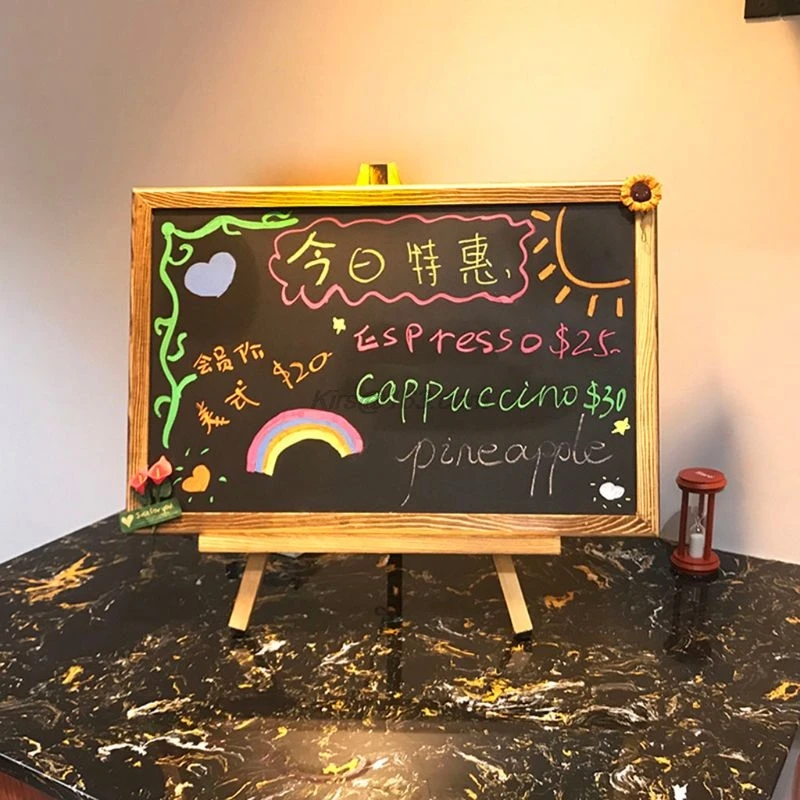 今日特惠
Espresso $25
会员价
$20
美式
Cappuccino $30
pineapple